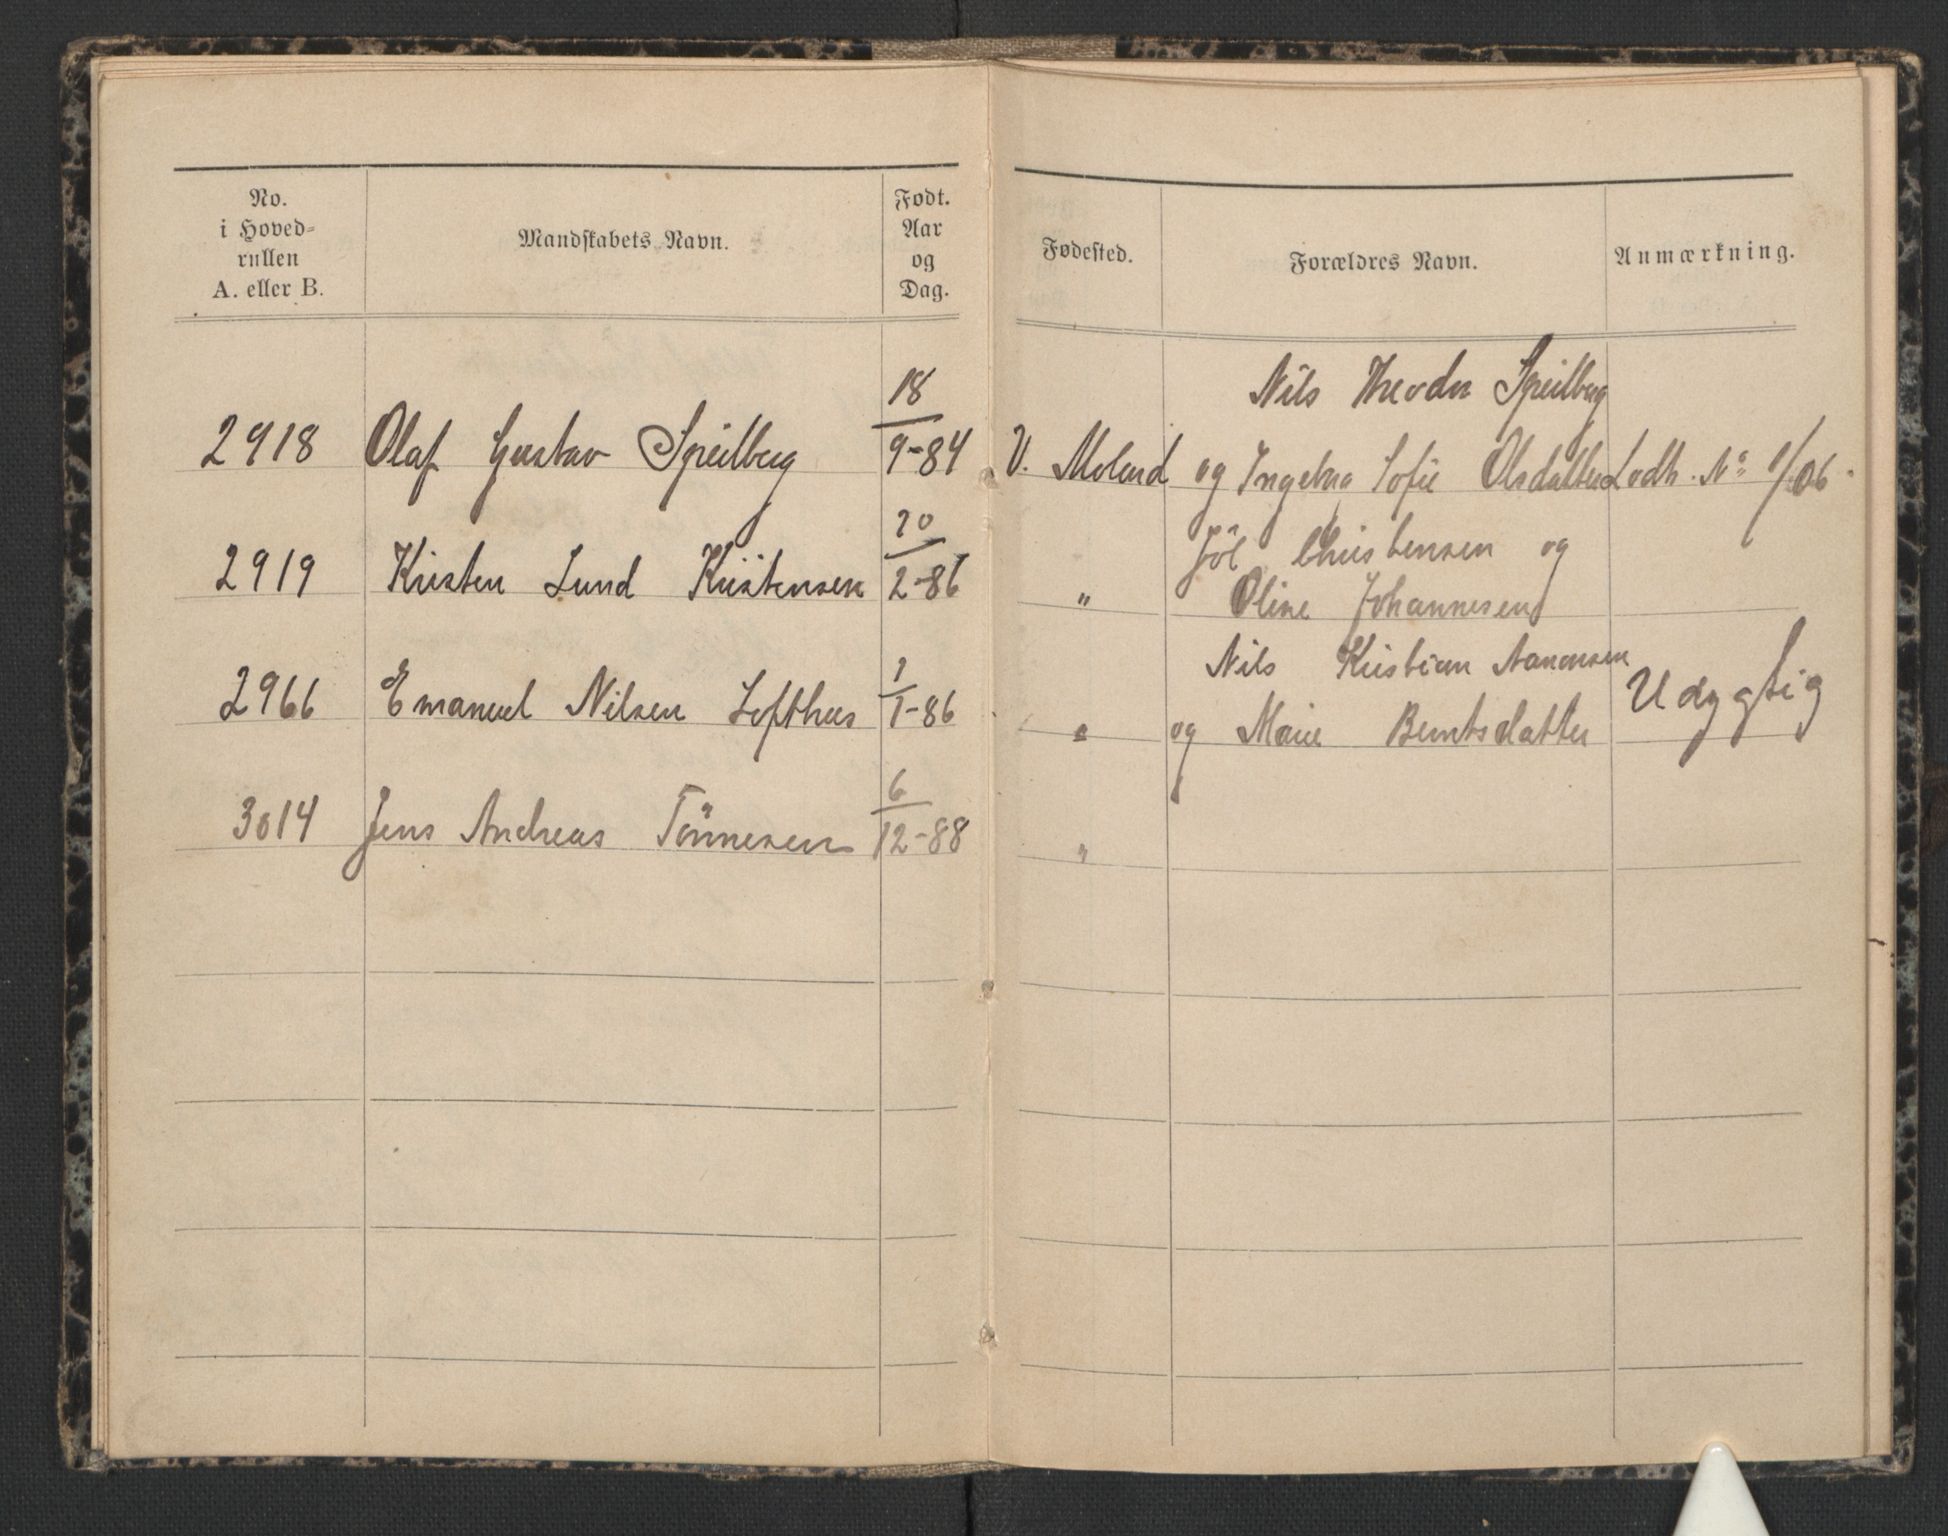 No.
i Hoved-
rullen
A. eller B.
Mandskabets Navn.
Født.
Aar
og
Dag.
Fødested.
Forældres Navn.
Anmærkning.
18
Nils Theodor Speilberg
2918 Olaf Gustav Speilberg 9-84 V. Moland og Ingebrg Sofie Olsdatter Lodh. No 1/06
20
Jöl Christensen og
2919 Kristen Lund Kristensen 2-86 " Oline Johannesen
1
Nils Kristian Aanonsen
2966 Emanuel Nilsen Lofthus 1-86 " og Marie Berntsdatter Udygtig
6
3014 Jens Andreas Tönnesen 12-88 "